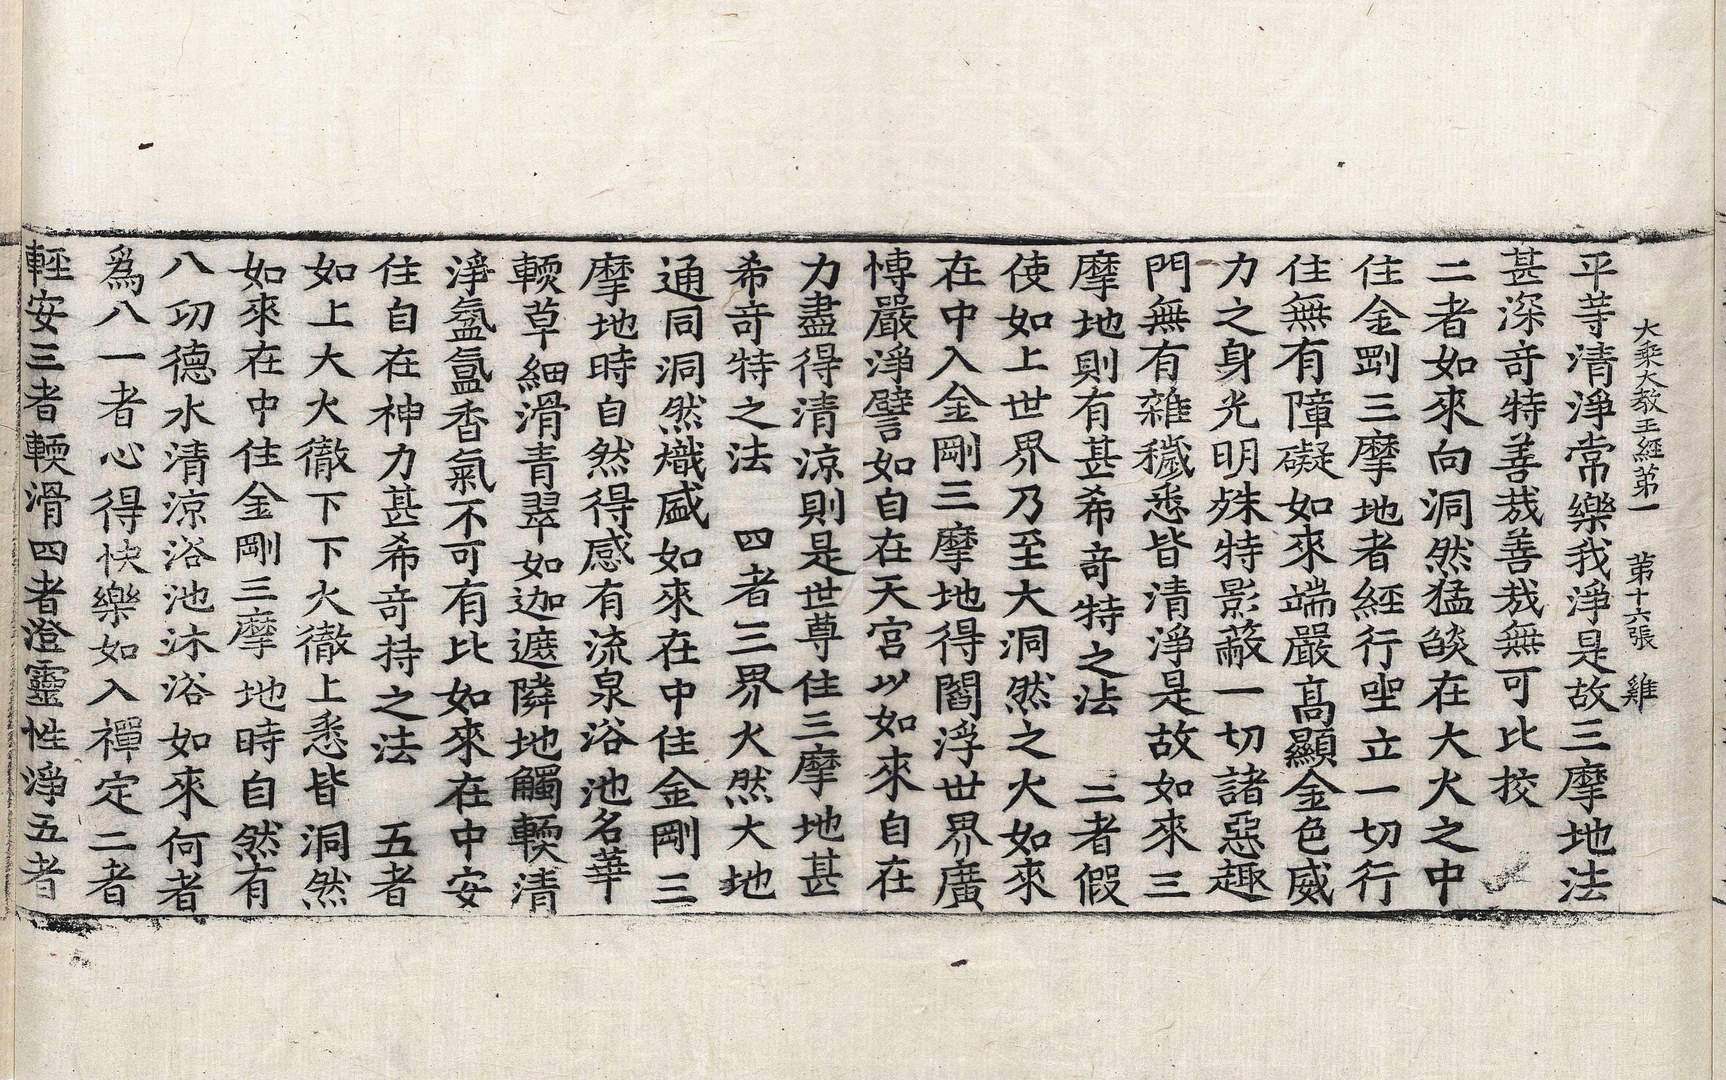 大乘大教王經第一　第十六張　雞
平等清淨常樂我淨是故三摩地法
甚深竒特善㦲善㦲無可比挍
二者如來向洞然猛㷔在大火之中
住金剛三摩地者經行坐立一切行
住無有障礙如來端嚴髙顯金色威
力之身光明殊特影蔽一切諸惡趣
門無有雜穢悉皆清淨是故如來三
摩地則有甚希竒特之法　三者假
使如上世界乃至大洞然之火如來
在中入金剛三摩地得閻浮世界廣
愽嚴淨譬如自在天宮以如來自在
力盡得清涼則是世尊住三摩地甚
希竒特之法　四者三界火然大地
通同洞然熾盛如來在中住金剛三
摩地時自然得感有流泉浴池名華
輭草細滑青翠如迦遮隣地觸輭清
淨氤氳香氣不可有比如來在中安
住自在神力甚希竒持之法　五者
如上大火徹下下火徹上悉皆洞然
如來在中住金剛三摩地時自然有
八㓛德水清涼浴池沐浴如來何者
爲八一者心得快樂如入禪定二者
輕安三者輭滑四者澄靈性淨五者